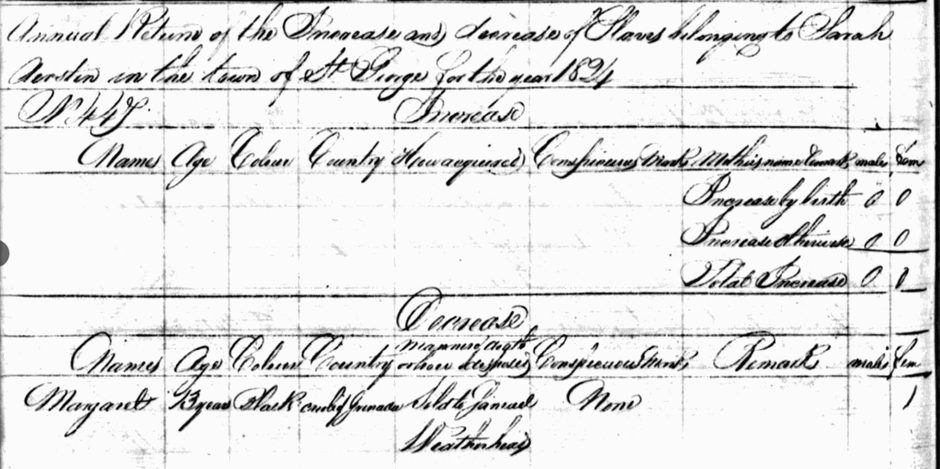 Annual Return of the Increase and decrease of Slaves belonging to Sarah
in the town of St George for the year 1824
No 447
Increase
Names Age Colour Country How acquired Conspicuous Mark Mothers name Remark males Fem
Increase by birth 0 0
Increase otherwise 0 0
Total Increase 0 0
Decrease
Names Age Colour Country manner death or how disposed Conspicuous Mark Remark males fem
Margaret 23 years Black Grenada Sold to Samuel None 1
Weatherhead